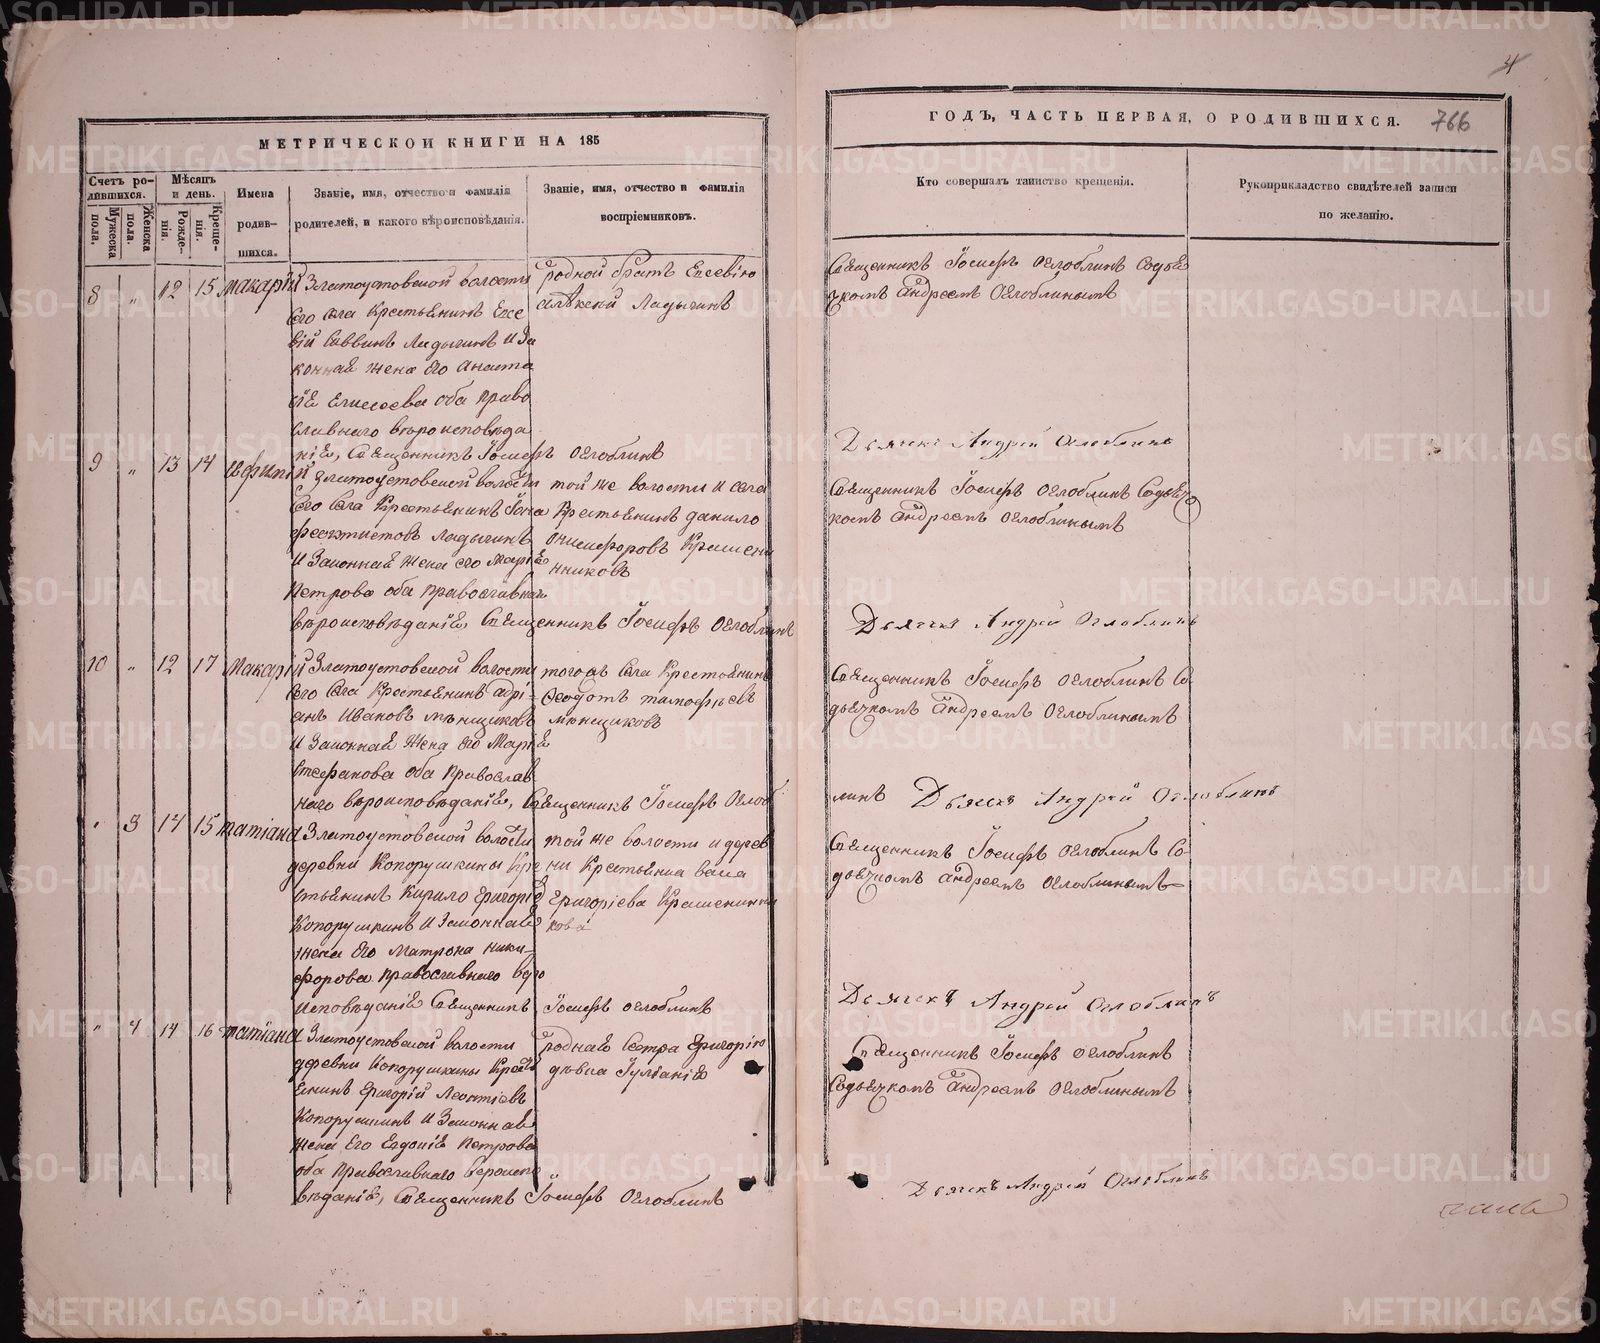 МЕТРИЧЕСКОЙ КНИГИ НА 185
Счетъ ро-
дившихся.
Мѣсяцъ
и день.
Имена
родив-
шихся.
Званіе, имя, отчество и фамилія
родителей, и какого вѣроисповѣданія.
Званіе, имя, отчество и фамилія
воспріемниковъ.
Мужеска
пола.
Женска
пола.
Рожде-
нія.
Креще-
нія.
8 " 12 15 Макарій
Златоустовской волости
сего села Крестьянинъ Евсе
вій Саввинъ Ладыгинъ и за
конная жена его Анаста
сія Елисеева оба право
славнаго вѣроисповѣда
нія, Священникъ Іосифъ Оглоблинъ
родной братъ Евсевію
Алѣксей Ладыгинъ
9 " 13 14 Ефимій
Златоустовской волости
сего села Крестьянинъ Іона
Феоктистовъ Ладыгинъ
и законная жена его Марія
Петрова оба православнаго
вѣроисповѣданія Священникъ Іосифъ Оглоблинъ
той же волости и села
Крестьянинъ Данило
Онисифоровъ Крашени
нниковъ
10 " 12 17 Макарій
Златоустовской волости
сего села Крестьянинъ Адрі-
анъ Ивановъ Мѣнщиковъ
и законная жена его Марія
Стефанова оба православ
наго вѣроисповѣданія, Священникъ Іосифъ Оглоб
тогожъ села Крестьянинъ
Феодотъ Тимофѣевъ
Мѣнщиковъ
" 3 14 15 Татіана
Златоустовской волости
деревни Копорушкины Кре
стьянинъ Кирило Григорьевъ
Копорушкинъ и законная
жена его Матрона Ники-
форова православнаго вѣро
исповѣданія Священникъ Іосифъ Оглоблинъ
той же волости и дерев
ни Крестьянка
Григоріева Крашениннi
кова
" 4 14 16 Татіана
Златоустовской волости
деревни Копорушкины Кресть
янинъ Григорій Леонтіевъ
Копорушкинъ и законная
жена его Евдокія Петрова
оба православнаго вѣроиспо
вѣданія, Священникъ Іосифъ Оглоблинъ
родная сестра Григорію
дѣвка Іуліанія
4
ГОДЪ, ЧАСТЬ ПЕРВАЯ, О РОДИВШИХСЯ.
766
Кто совершалъ таинство крещенія.
Рукоприкладство свидѣтелей записи
по желанію.
Священникъ Іосифъ Оглоблинъ Содья
чкомъ Андреемъ Оглоблинымъ
Дьячекъ Андрей Оглоблинъ
Священникъ Іосифъ Оглоблинъ Содьяч
комъ Андреемъ Оглоблинымъ
Дьячекъ Андрей Оглоблинъ
Священникъ Іосифъ Оглоблинъ Со
дьячкомъ Андреемъ Оглоблинымъ
линъ Дьячекъ Андрей Оглоблинъ
Священникъ Іосифъ Оглоблинъ Со-
дьячкомъ Андреемъ Оглоблинымъ
Дьячекъ Андрей Оглоблинъ
Священникъ Іосифъ Оглоблинъ
Содьячкомъ Андреемъ Оглоблинымъ
Дьячекъ Андрей Оглоблинъ
METRIKI.GASO-URAL.RU